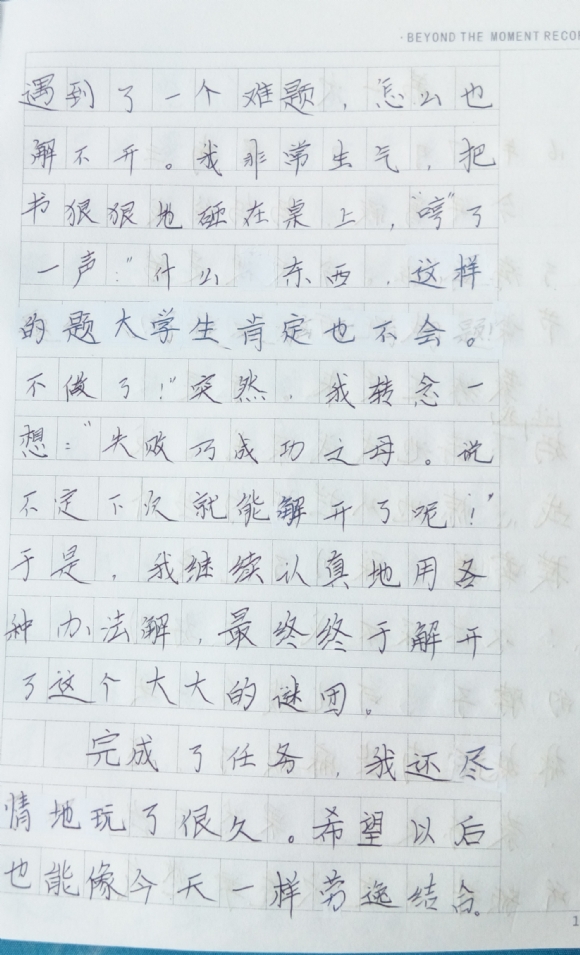 ·BEYOND THE MOMENT RECO
遇到了一个难题，怎么也
解不开。我非常生气，把
书狠狠地砸在桌上，“哼”了
一声：“什么东西，这样
的题大学生肯定也不会。
不做了！”突然，我转念一
想：“失败乃成功之母。说
不定下次就能解开了呢！”
于是，我继续认真地用各
种办法解，最终终于解开
了这个大大的谜团。
完成了任务，我还尽
情地玩了很久。希望以后
也能像今天一样劳逸结合。
1